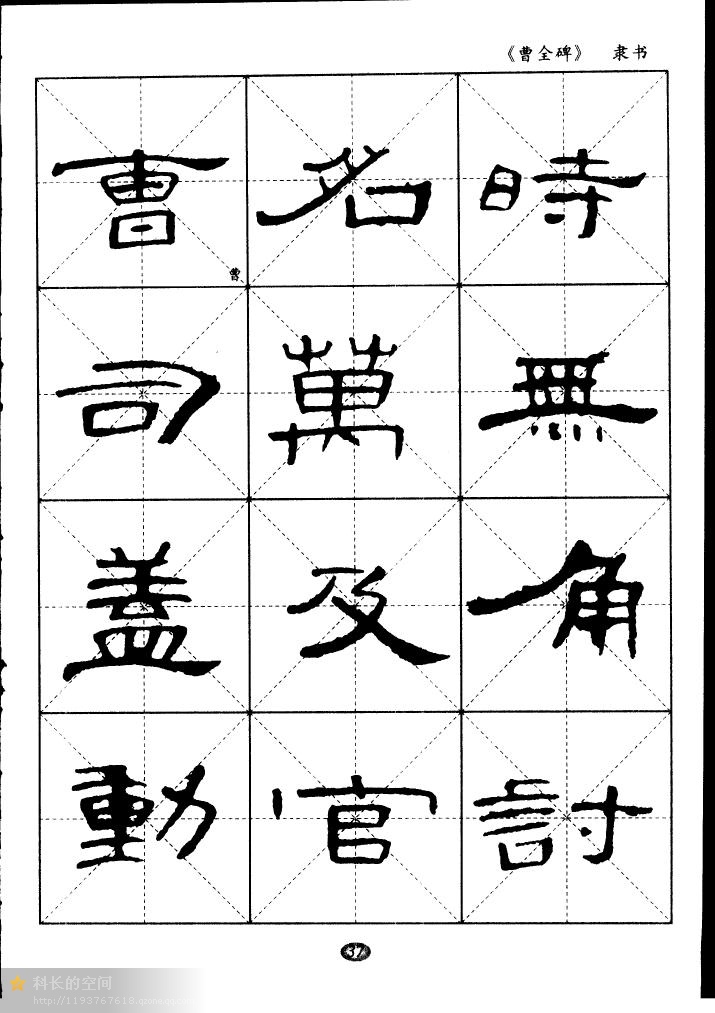 《曹全碑》 隶书
曹 名 時
曹
司 萬 無
盖 及 角
動 官 討
37
科长的空间
http://1193767618.qzone.qq.com